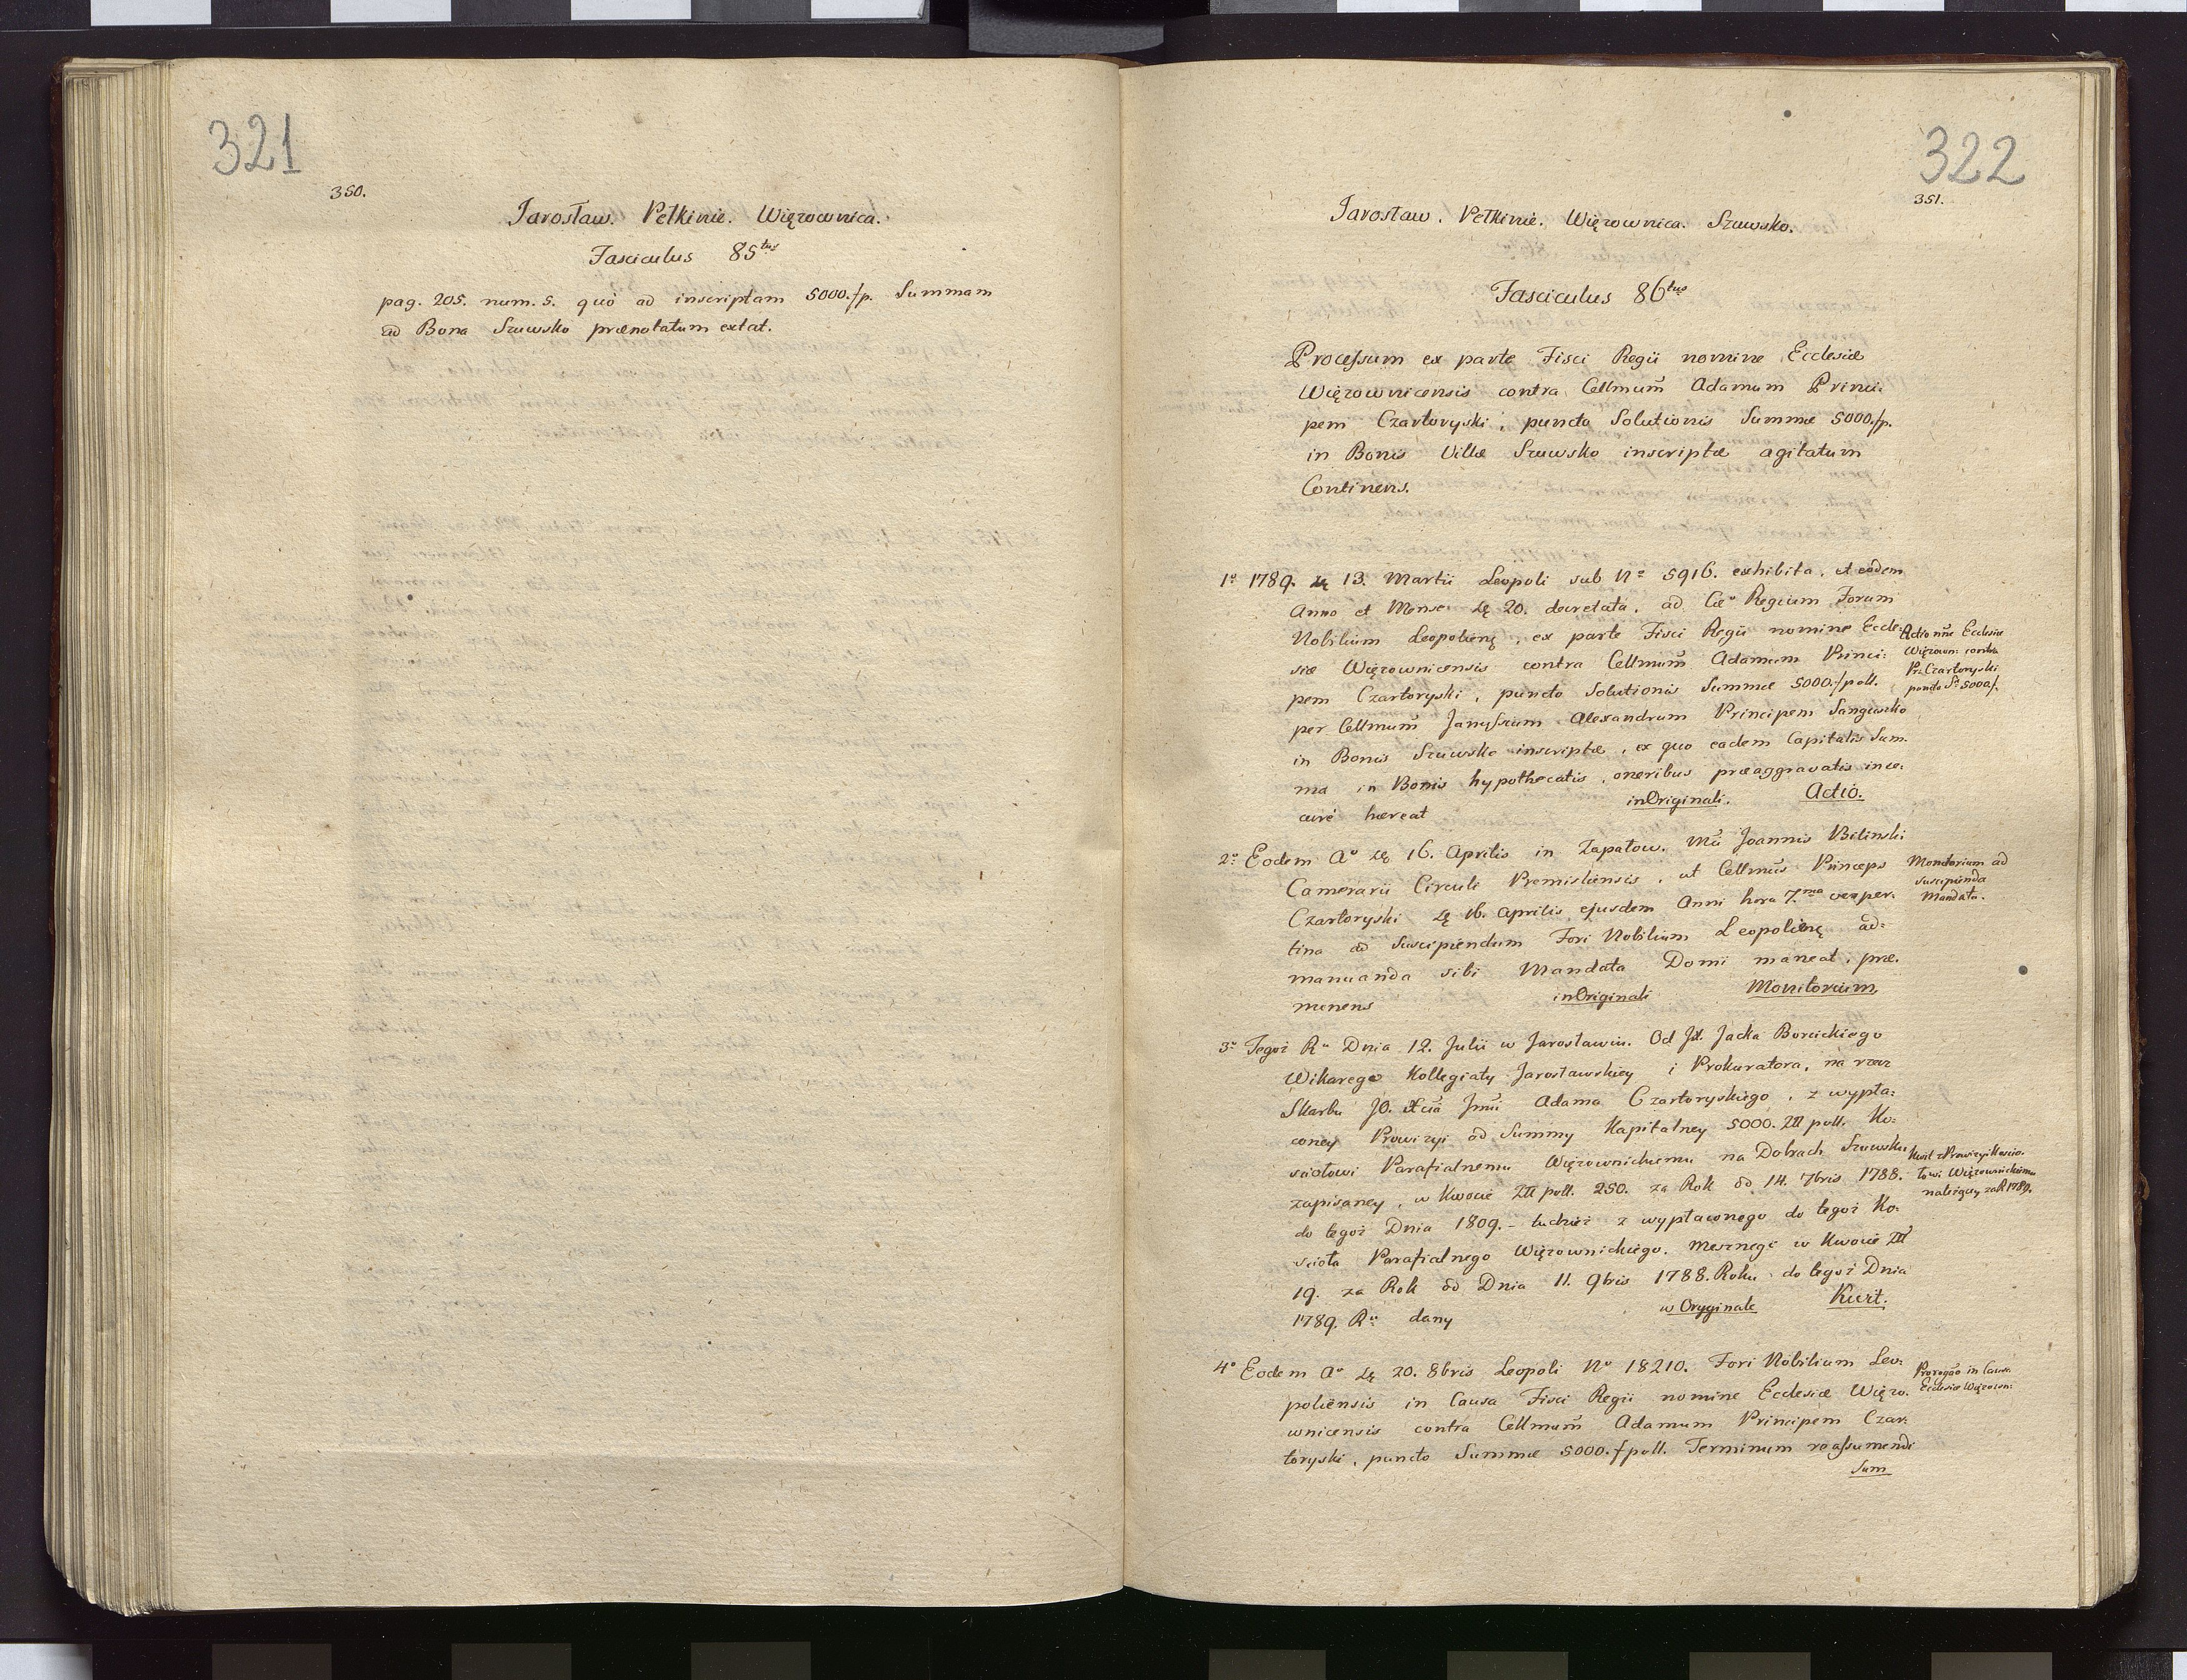 321
350.
Jarosław. Pełkinie. Więzownica.
Fasciculus 85tus
pag. 205. num. 5. quó ad inscriptam 5000.fp. Summam
ad Bona Szuwsko prænotatum extat.
322
351.
Jarosław. Pełkinie. Więzownica. Szuwsko.
Fasciculus 86tus
Processum ex parte Fisci Regii nomine Ecclesiæ
Więzownicensis contra Cellmum̃ Adamum Princi:
pem Czartoryski, puncto Solutionis Summæ 5000.fp.
in Bonis Villæ Szuwsko inscriptæ agitatum
Continens.
1º 1789. 13. Martii Leopoli sub Nº 5916. exhibita, et eodem
Anno et Mense 20. decretata, ad Regium Forum
Nobilium Leopolienę, ex parte Fisci Regii nomine Eccle:
siæ Więzownicensis contra Cellmum̃ Adamum Princi:
pem Czartoryski, puncto Solutionis Summæ 5000.fpoll.
per Cellmum̃ Janussium Alexandrum Principem Sanguszko
in Bonis Szuwsko inscriptæ, ex quo eadem Capitalis Sum:
ma in Bonis hypothecatis, oneribus præaggravatis inse:
curé hæreat inOriginali. Actió.
Actio nn̄e Ecclesiæ
Więzown: contra
Pr: Czartoryski
puncto Sæ 5000f.
2º Eodem Aº 16. Aprilis in Zapałow. Joannis Bilinski
Camerarii Circuli Premisliensis, ut Cellmus̃ Princeps
Czartoryski 16. Aprilis ejusdem Anni hora 7ma vesper:
tina ad Suscipiendum Fori Nobilium Leopolienę ad:
manuanda sibi Mandata Domi maneat, præ:
monens inOriginali Monitorium.
Monitorium ad
suscipienda
Mandata.
3º Tegoż Rº Dnia 12. Julii w Jarosławiu. Od Jacka Borcickiego
Wikarego Kollegiaty Jarosławskiey i Prokuratora, na rzecz
Skarbu JO. Xcia Jm̃ci Adama Czartoryskiego, z wypła:
coney Prowizyi od Summy Kapitalney 5000. Zll poll. Ko:
sciołowi Parafialnemu Więzownickiemu na Dobrach Szuwsku
zapisaney, w Kwocie Zll poll. 250. za Rok od 14. 7bris 1788.
do tegoż Dnia 1809.– tudzież z wypłaconego do tegoż Ko:
scioła Parafialnego Więzownickiego. Mesznego w Kwocie Zll
19. za Rok od Dnia 11. 9bris 1788. Roku do tegoż Dnia
1789. Rº dany w Oryginale Kwit.
Kwit z Prowizyi Koscio:
łowi Więzownickiemu
należącey za R 1789.
4º Eodem Aº 20. 8bris Leopoli Nº 18210. Fori Nobilium Leo:
poliensis in Causa Fisci Regii nomine Ecclesiæ Więzo:
wnicensis contra Cellmum̃ Adamum Principem Czar:
toryski, puncto Summæ 5000.fpoll. Terminum reassumendi
Sum
Prorogão in Causa
Ecclesiæ Więzown: